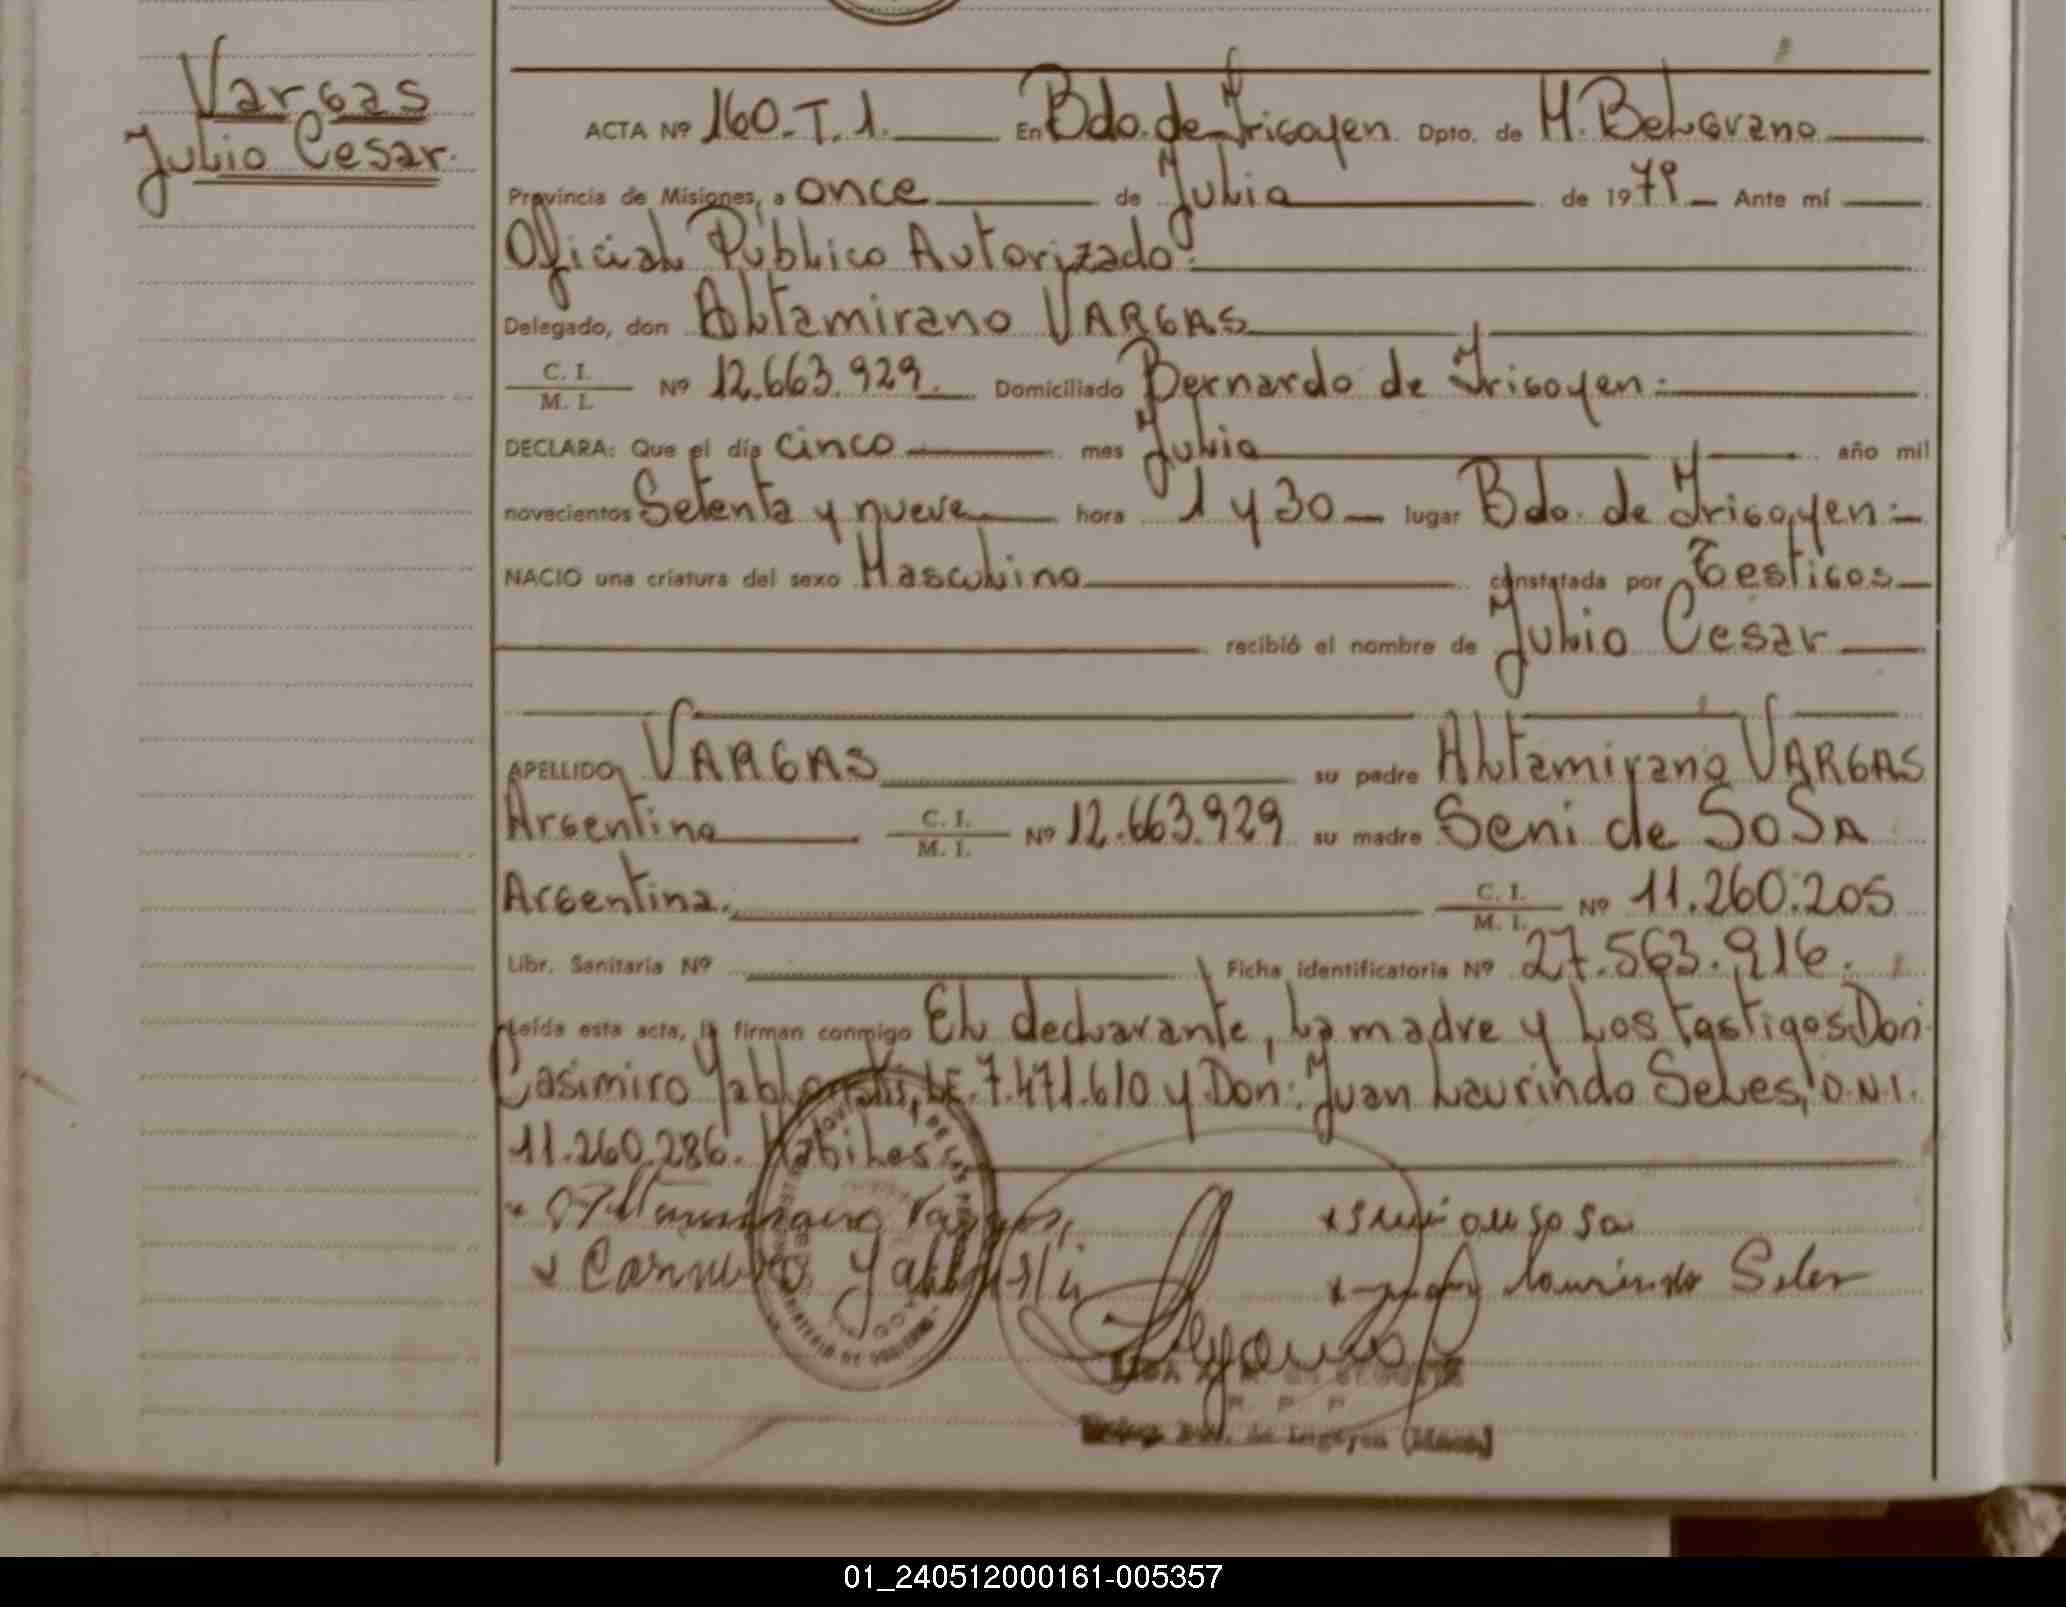 Vargas
Julio Cesar.
ACTA Nº 160-T.1. En Bdo. de Irigoyen. Dpto. de M. Belgrano
Provincia de Misiones, a once de Julio de 1979 Ante mí
Oficial Público Autorizado:
Delegado, don Altamirano VARGAS
C. I.
M. I. Nº 12.663.929. Domiciliado Bernardo de Irigoyen:
DECLARA: Que el día cinco mes Julio año mil
novecientos Setenta y nueve hora 1 y 30 lugar Bdo. de Irigoyen:
NACIO una criatura del sexo Masculino constatada por Testigos
recibió el nombre de Julio Cesar
APELLIDO VARGAS su padre Altamirano VARGAS
Argentino C. I. M. I. Nº 12.663.929 su madre Seni de SOSA
Argentina. C. I. M. I. Nº 11.260.205
Libr. Sanitaria Nº Ficha identificatoria Nº 27.563.916.
Leída esta acta, la firman conmigo El declarante, La madre y Los Testigos Don
Casimiro L.E. 7.471.610 y Don: Juan Laurindo Seles, D.N.I.
11.260.286. Habiles
Vargas
Laurindo Seles
01_240512000161-005357